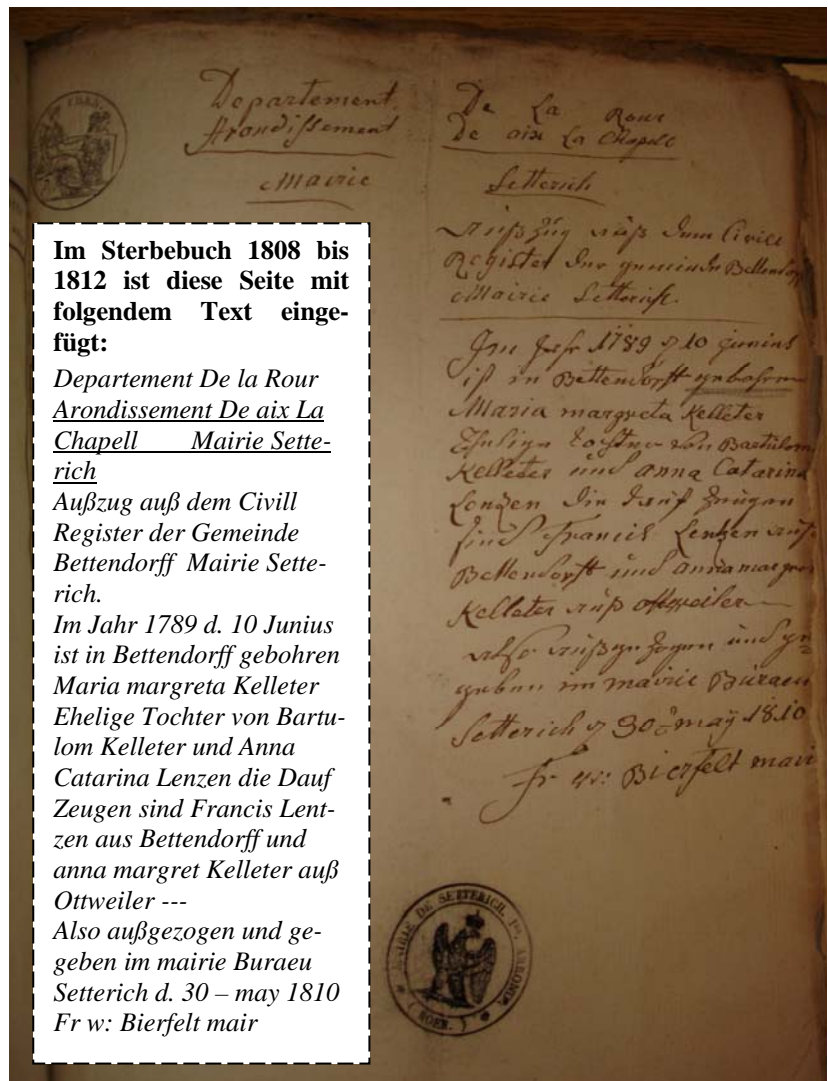 Departement De La Rour
Arondissement De aix La Chapele
Mairie Setterich
Außzug auß dem Civill
Register der gemeinde Bettendorff
Mairie Setterich.
Im Jahr 1789 d 10 junius
ist in Bettendorff gebohren
Maria margreta Kelleter
Ehelige Tochter von Bartulom
Kelleter und anna Catarina
Lenzen die Dauf Zeugen
sind Francis Lentzen auß
Bettendorff und anna margret
Kelleter auß ottweiler
also außgezogen und ge-
geben im mairie Buraeu
Setterich d 30 may 1810
Fr w: Bierfelt mair
MAIRIE DE SETTERICH, Ier. ARRONDt.
(ROER.)
Im Sterbebuch 1808 bis
1812 ist diese Seite mit
folgendem Text einge-
fügt:
Departement De la Rour
Arondissement De aix La
Chapell Mairie Sette-
rich
Außzug auß dem Civill
Register der Gemeinde
Bettendorff Mairie Sette-
rich.
Im Jahr 1789 d. 10 Junius
ist in Bettendorff gebohren
Maria margreta Kelleter
Ehelige Tochter von Bartu-
lom Kelleter und Anna
Catarina Lenzen die Dauf
Zeugen sind Francis Lent-
zen aus Bettendorff und
anna margret Kelleter auß
Ottweiler ---
Also außgezogen und ge-
geben im mairie Buraeu
Setterich d. 30 – may 1810
Fr w: Bierfelt mair